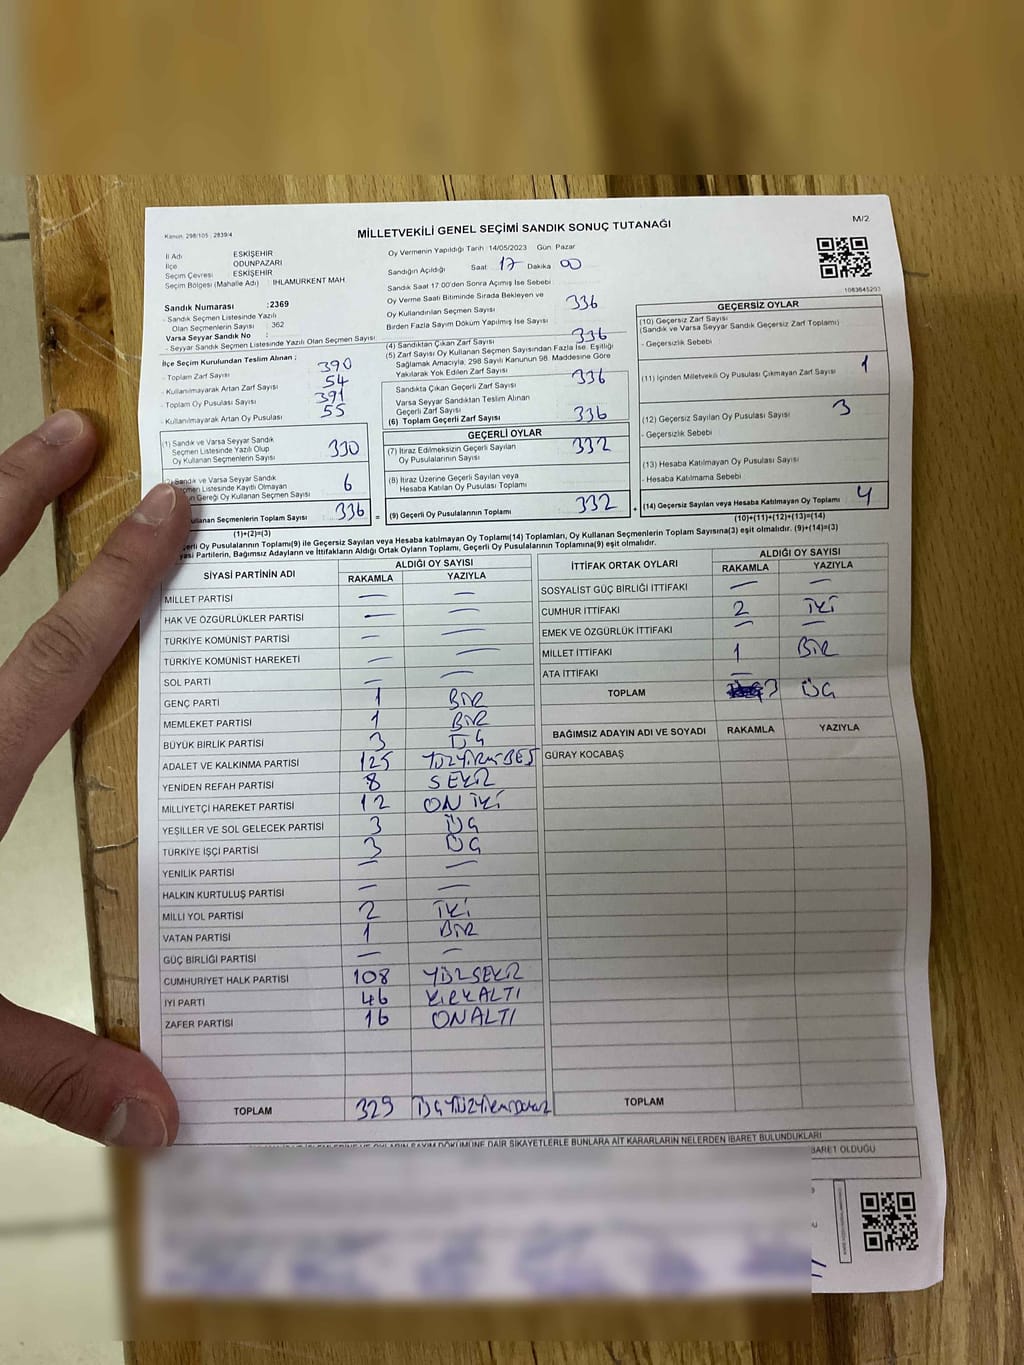 Kanun: 298/105 , 2839/4
MİLLETVEKİLİ GENEL SEÇİMİ SANDIK SONUÇ TUTANAĞI
M/2
İl Adı : ESKİŞEHİR
İlçe : ODUNPAZARI
Seçim Çevresi : ESKİŞEHİR
Seçim Bölgesi (Mahalle Adı) : IHLAMURKENT MAH
Sandık Numarası :2369
- Sandık Seçmen Listesinde Yazılı
Olan Seçmenlerin Sayısı : 362
Varsa Seyyar Sandık No :
- Seyyar Sandık Seçmen Listesinde Yazılı Olan Seçmen Sayısı
İlçe Seçim Kurulundan Teslim Alınan ;
- Toplam Zarf Sayısı 390
- Kullanılmayarak Artan Zarf Sayısı 54
- Toplam Oy Pusulası Sayısı 391
- Kullanılmayarak Artan Oy Pusulası 55
(1) Sandık ve Varsa Seyyar Sandık
Seçmen Listesinde Yazılı Olup
Oy Kullanan Seçmenlerin Sayısı 330
Sandık ve Varsa Seyyar Sandık
Listesinde Kayıtlı Olmayan
Gereği Oy Kullanan Seçmen Sayısı 6
Seçmenlerin Toplam Sayısı 336
(1)+(2)=(3)
Oy Vermenin Yapıldığı Tarih :14/05/2023 Gün: Pazar
Sandığın Açıldığı Saat 17 Dakika 00
Sandık Saat 17.00'den Sonra Açılmış İse Sebebi
Oy Verme Saati Bitiminde Sırada Bekleyen ve
Oy Kullandırılan Seçmen Sayısı 336
Birden Fazla Sayım Döküm Yapılmış İse Sayısı
(4) Sandıktan Çıkan Zarf Sayısı 336
(5) Zarf Sayısı Oy Kullanan Seçmen Sayısından Fazla İse, Eşitliği
Sağlamak Amacıyla, 298 Sayılı Kanunun 98. Maddesine Göre
Yakılarak Yok Edilen Zarf Sayısı
Sandıkta Çıkan Geçerli Zarf Sayısı 336
Varsa Seyyar Sandıktan Teslim Alınan
Geçerli Zarf Sayısı
(6) Toplam Geçerli Zarf Sayısı 336
GEÇERLİ OYLAR
(7) İtiraz Edilmeksizin Geçerli Sayılan
Oy Pusulalarının Sayısı 332
(8) İtiraz Üzerine Geçerli Sayılan veya
Hesaba Katılan Oy Pusulası Toplamı
= (9) Geçerli Oy Pusulalarının Toplamı 332
1083645203
GEÇERSİZ OYLAR
(10) Geçersiz Zarf Sayısı
(Sandık ve Varsa Seyyar Sandık Geçersiz Zarf Toplamı)
- Geçersizlik Sebebi
(11) İçinden Milletvekili Oy Pusulası Çıkmayan Zarf Sayısı 1
(12) Geçersiz Sayılan Oy Pusulası Sayısı 3
- Geçersizlik Sebebi
(13) Hesaba Katılmayan Oy Pusulası Sayısı
- Hesaba Katılmama Sebebi
+ (14) Geçersiz Sayılan veya Hesaba Katılmayan Oy Toplamı 4
(10)+(11)+(12)+(13)=(14)
Oy Pusulalarının Toplamı(9) ile Geçersiz Sayılan veya Hesaba katılmayan Oy Toplamı(14) Toplamları, Oy Kullanan Seçmenlerin Toplam Sayısına(3) eşit olmalıdır. (9)+(14)=(3)
Partilerin, Bağımsız Adayların ve İttifakların Aldığı Ortak Oyların Toplamı, Geçerli Oy Pusulalarının Toplamına(9) eşit olmalıdır.
SİYASİ PARTİNİN ADI ALDIĞI OY SAYISI
RAKAMLA YAZIYLA
MİLLET PARTİSİ — —
HAK VE ÖZGÜRLÜKLER PARTİSİ — —
TÜRKİYE KOMÜNİST PARTİSİ — —
TÜRKİYE KOMÜNİST HAREKETİ — —
SOL PARTİ — —
GENÇ PARTİ 1 BİR
MEMLEKET PARTİSİ 1 BİR
BÜYÜK BİRLİK PARTİSİ 3 ÜÇ
ADALET VE KALKINMA PARTİSİ 125 YÜZYİRMİBEŞ
YENİDEN REFAH PARTİSİ 8 SEKİZ
MİLLİYETÇİ HAREKET PARTİSİ 12 ON İKİ
YEŞİLLER VE SOL GELECEK PARTİSİ 3 ÜÇ
TÜRKİYE İŞÇİ PARTİSİ 3 ÜÇ
YENİLİK PARTİSİ — —
HALKIN KURTULUŞ PARTİSİ — —
MİLLİ YOL PARTİSİ 2 İKİ
VATAN PARTİSİ 1 BİR
GÜÇ BİRLİĞİ PARTİSİ — —
CUMHURİYET HALK PARTİSİ 108 YÜZSEKİZ
İYİ PARTİ 46 KIRKALTI
ZAFER PARTİSİ 16 ONALTI
TOPLAM 329 ÜÇYÜZYİRMİDOKUZ
İTTİFAK ORTAK OYLARI ALDIĞI OY SAYISI
RAKAMLA YAZIYLA
SOSYALİST GÜÇ BİRLİĞİ İTTİFAKI — —
CUMHUR İTTİFAKI 2 İKİ
EMEK VE ÖZGÜRLÜK İTTİFAKI — —
MİLLET İTTİFAKI 1 BİR
ATA İTTİFAKI —
TOPLAM 3 ÜÇ
BAĞIMSIZ ADAYIN ADI VE SOYADI RAKAMLA YAZIYLA
GÜRAY KOCABAŞ
TOPLAM
OYLARIN SAYIM DÖKÜMÜNE DAİR ŞİKAYETLERLE BUNLARA AİT KARARLARIN NELERDEN İBARET BULUNDUKLARI
İBARET OLDUĞU